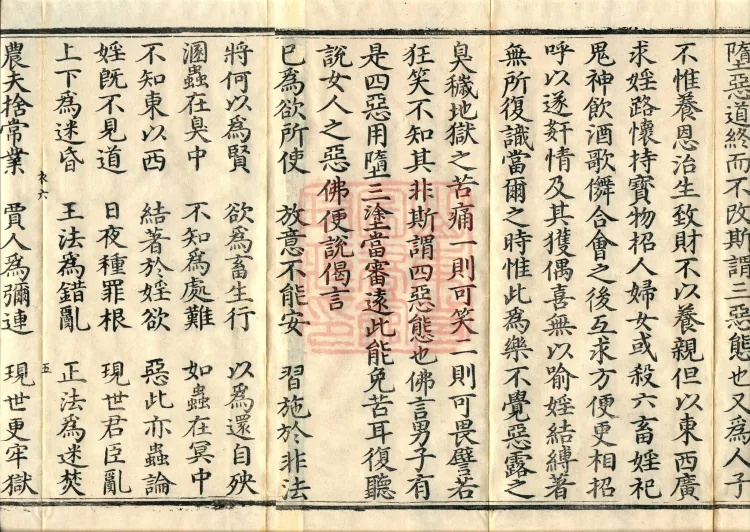 墮惡道終而不改斯謂三惡態也又為人子
不惟養恩治生致財不以養親但以東西廣
求婬路懷持寶物招人婦女或殺六畜婬祀
鬼神飲酒歌儛合會之後互求方便更相招
呼以遂姧情及其獲偶喜無以喻婬結縛著
無所復識當爾之時惟此為樂不覺惡露之
臭穢地獄之苦痛一則可笑二則可畏譬若
狂笑不知其非斯謂四惡態也佛言男子有
是四惡用墮三塗當審遠此能免苦耳復聽
說女人之惡佛便說偈言
已為欲所使 放意不能安 習施於非法
將何以為賢 欲為畜生行 以為還自殃
溷蟲在臭中 不知為處難 如蟲在冥中
不知東以西 結著於婬欲 惡此亦蟲論
婬旣不見道 日夜種罪根 現世君臣亂
上下為迷昏 王法為錯亂 正法為迷焚
衣六 五
農夫捨常業 賈人為彌連 現世更牢獄